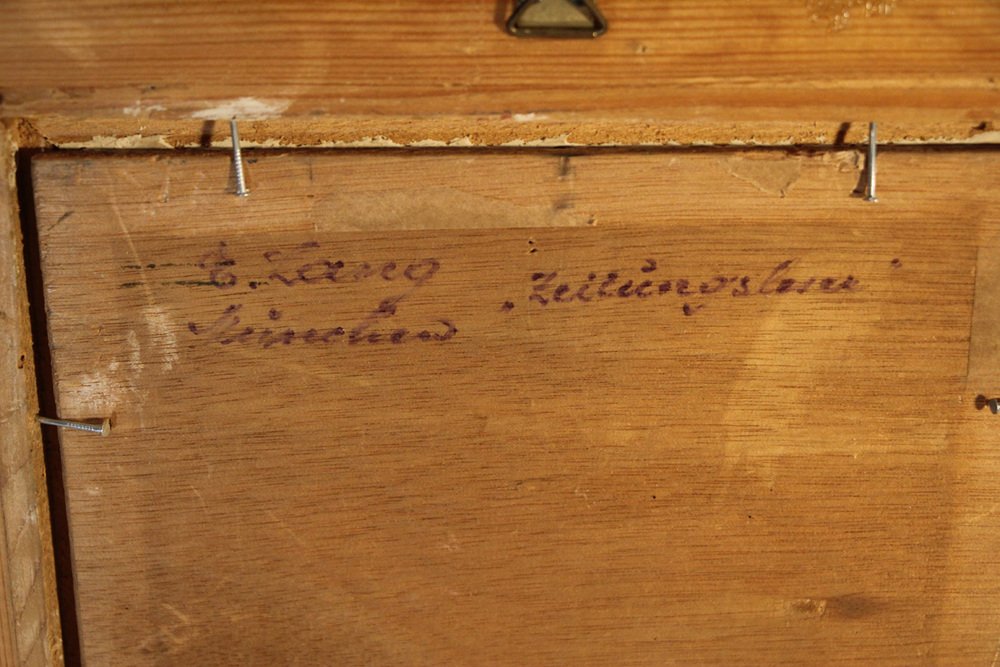 E. Lang
München
"Zeitungsleser"